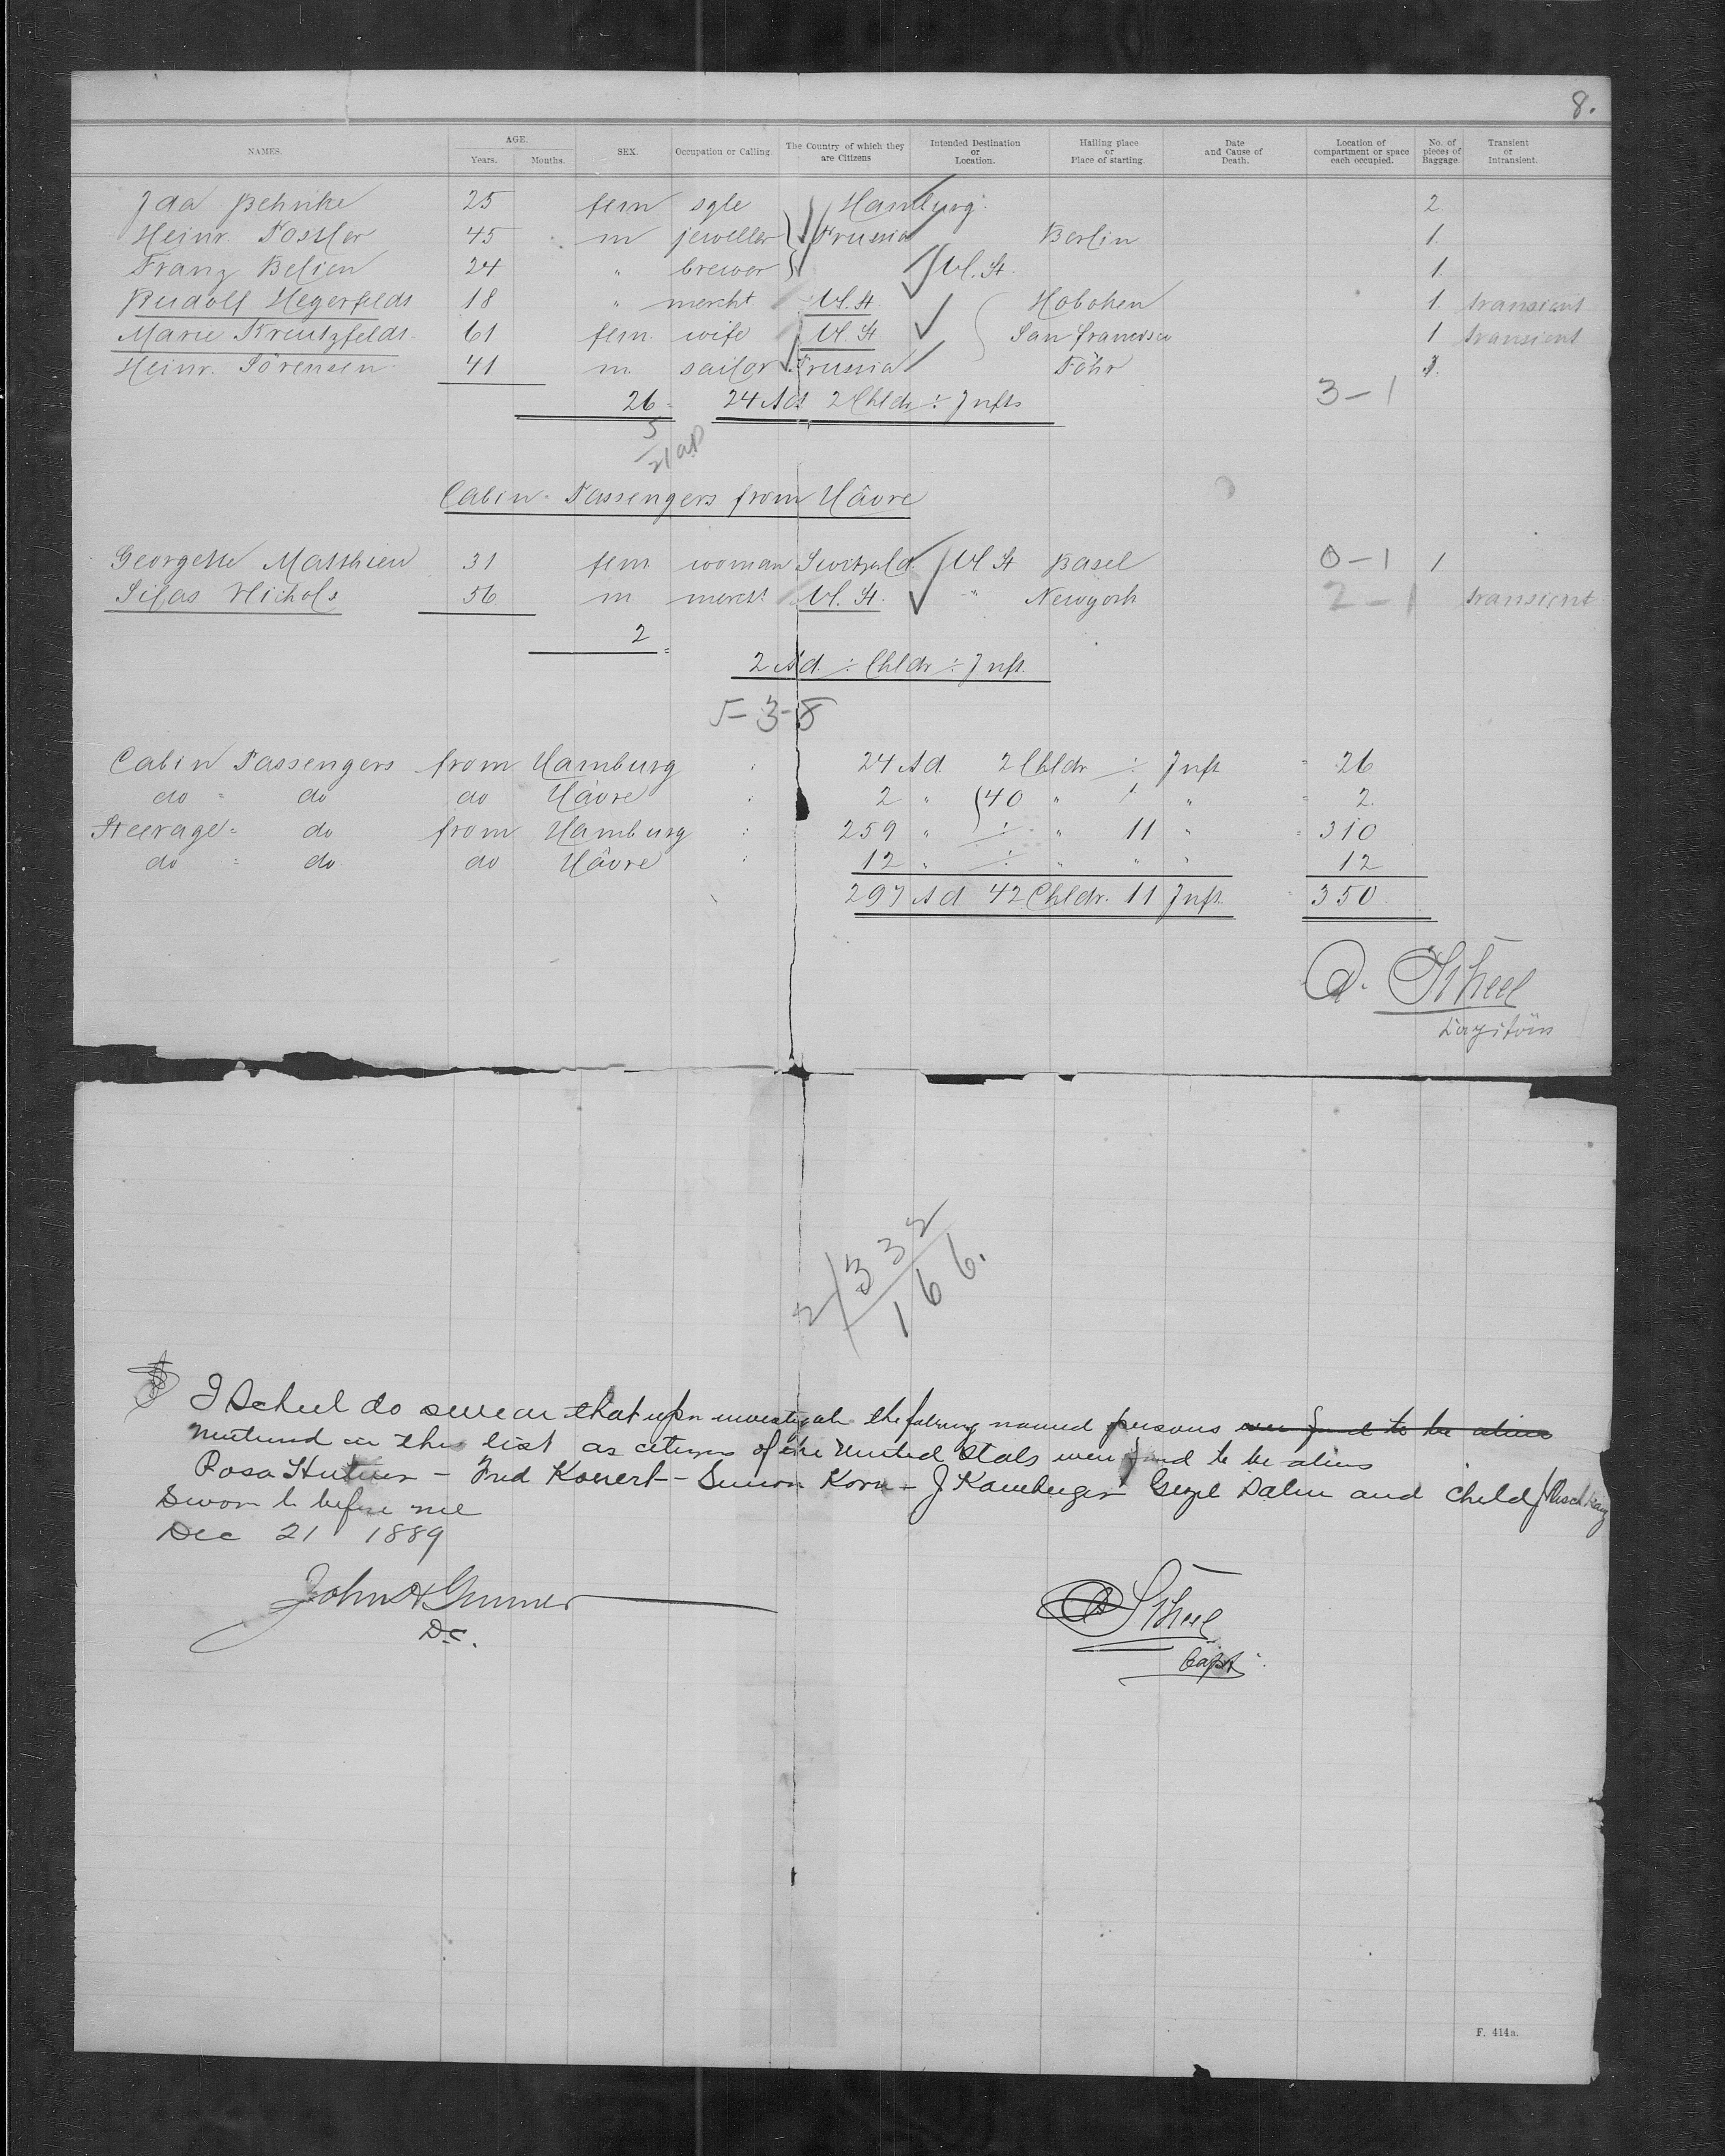 8.
NAMES. AGE. Years. Months. SEX. Occupation or Calling. The Country of which they are Citizens Intended Destination or Location. Hailing place or Place of starting. Date and Cause of Death. Location of compartment or space each occupied. No. of pieces of Baggage. Transient or Intransient.
Ida Behnke 25 fem sgle Hamburg. 2.
Heinr. 45 m jeweller Prussia Berlin 1.
Franz Belien 24 " brewer U. St. 1.
Rudolf Hegerfeldt 18 " mercht U. St. Hoboken 1. transient
Marie Kreutzfeldt. 61 fem. wife U. St San francisco 1 transient
Heinr. Sörensen 41 m. sailor Prussia Föhr
26 24 Ad 2 Chldr ÷ Infts 3-1
5
21
Cabin-Passengers from Hâvre
Georgette Matthieu 31 fem woman Switzrld U St Basel 0-1 1
Silas Nichols 56 m mercht U. St. " Newyork 2-1 transient
2
2 Ad. ÷ Chldr ÷ Inft.
5-3-8
Cabin Passengers from Hamburg : 24 Ad. 2 Chldr ÷ Inft = 26
do = do do Hâvre : 2 " 40 " " = 2.
Steerage = do from Hamburg : 259 " ÷ " 11 " = 310
do = do do Hâvre : 12 " ÷ " " " 12
297 Ad 42 Chldr. 11 Inft. = 350.
A. Scheel
2/332
166.
I Scheel do swear that upon investigation the following named persons were found to be aliens
mentioned in this list as citizens of the United States were found to be aliens
Rosa Hutner - Fred Konert - Simon Korn - J Kamberger Gezel Dalin and child
Sworn to before me
Dec 21 1889
D.C.
A Scheel
Capt.
F. 414a.